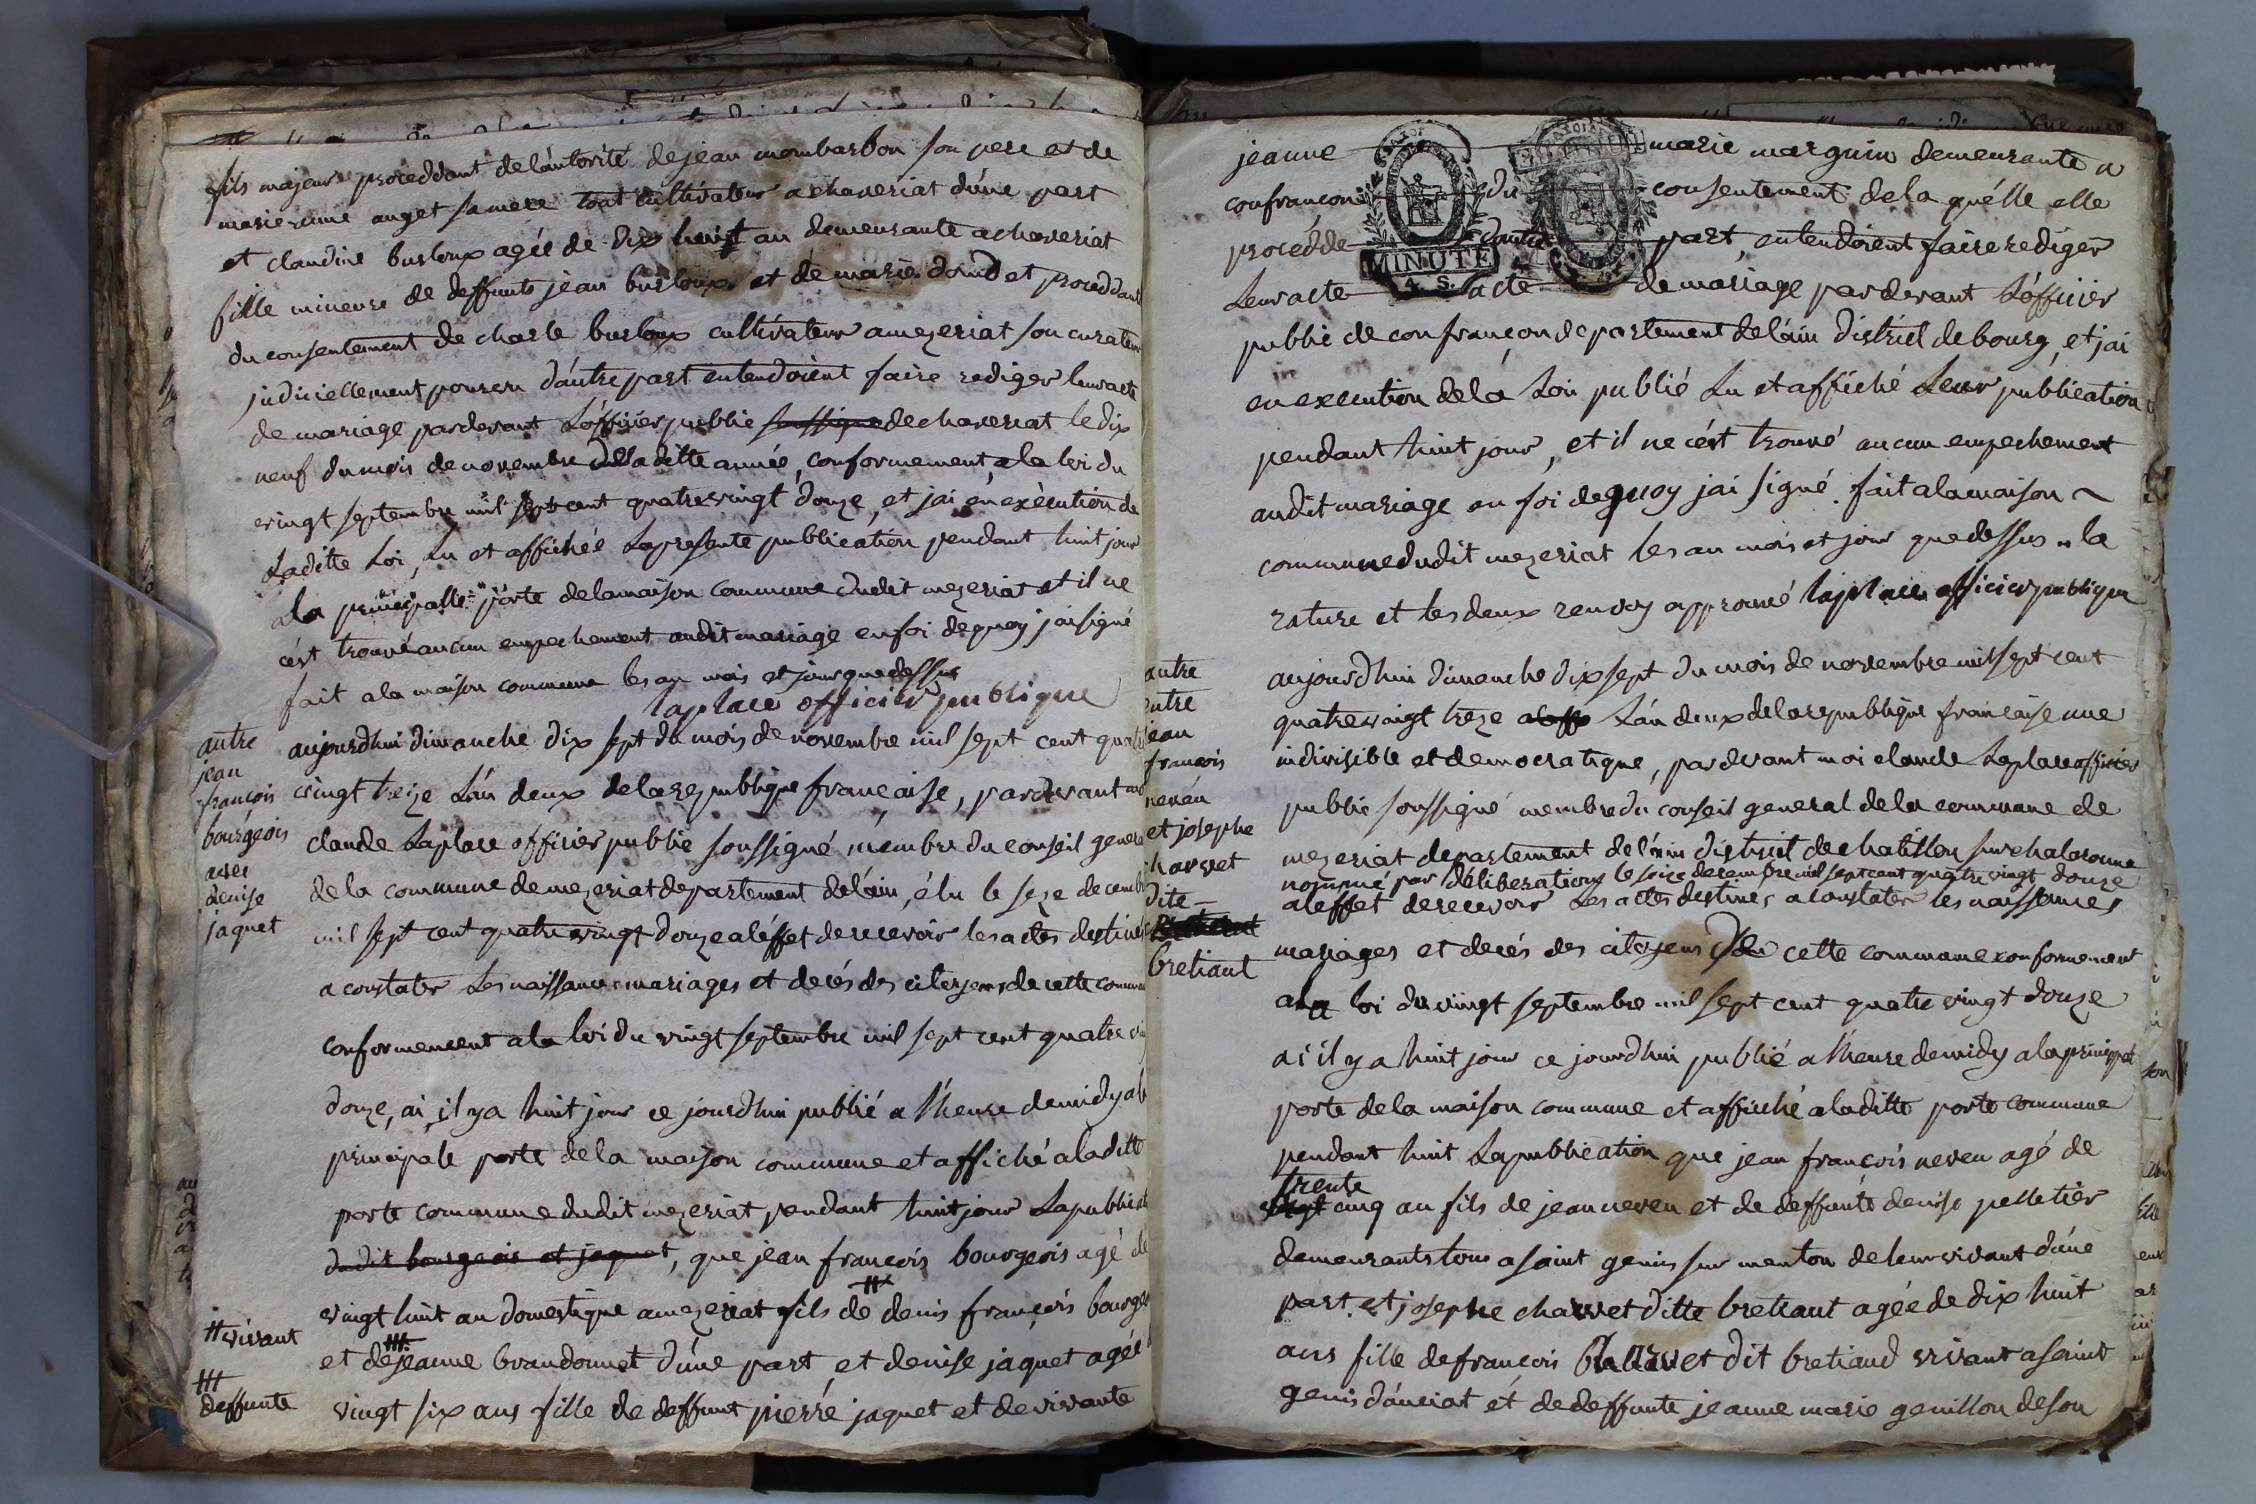 fils majeur procéddant de l'autorité de jean mombarbon son pere et de
marie anne auget sa mere tout cultivateur a chaveriat d'une part
et claudine burloux agée de dix huit an demeurante a chaveriat
fille mineure de deffunts jean burloux et de marie donid et proceddant
du consentement de charle burloux cultivateur a mezeriat son curateur
judiciellement pourvu d'autre part entendoient faire rediger leur acte
de mariage pardevant L'officier public soussigné de chaveriat le dix
neuf du mois de novembre de la ditte année, conformement a la loi du
vingt septembre mil sept cent quatre vingt douze, et jai en exécution de
Laditte Loi, Lu et affichée La presente publication pendant huit jour
a la principalle porte de la maison commune dudit mezeriat et il ne
cést trouvé aucun empechement audit mariage en foi de quoy jai signé
fait a la maison commune les an mois et jour que dessus
laplace officier publique
autre
jean
françois
bourgeois
avec
denise
jaquet
aujourdhui dimanche dix sept du mois de novembre mil sept cent quatre
vingt treize L'an deux de la republique française, pardevant moi
claude Laplace officier public soussigné, membre du conseil general
de la commune de mezeriat departement de l'ain, élu le seze decembre
mil sept cent quatre vingt douze a l'éffet de recevoir les actes destinés
a constater Les naissances mariages et decés des citoyens de cette commune
conformement a la loi du vingt septembre mil sept cent quatre vingt
douze, ai, il y a huit jour ce jourdhui publié a l'heure de midy a la
principale porte de la maison commune et affiché a la ditte
porte commune dudit mezeriat pendant huit jour La publication
dudit bourgeois et jaquet, que jean françois bourgeois agé de
vingt huit an domestique a mezeriat fils de denis françois bourgeois
# vivant
et de jeanne brandonnet d'une part et denise jaquet agée
deffunte
vingt six ans fille de deffunt pierre jaquet et de vivante
jeanne marie marguin demeurante a
confrancon du consentement de la quélle elle
procédde d'autre part, entendoient faire rediger
Leur acte acte de mariage pardevant L'officier
MINUTE
4. S.
public de confrançon departement de l'ain district de bourg, et jai
en execution de la Loi publié Lu et affiché Leur publication
pendant huit jour, et il ne cést trouvé aucun empechement
audit mariage en foi de quoy jai signé. fait a la maison ~
commune dudit mezeriat les an mois et jour que dessus la
rature et les deux renvoy approuvé laplace officier publique
autre
entre
jean
françois
neveu
et josephe
charvet
dite
bretiant
aujourdhui dimanche dix sept du mois de novembre mil sept cent
quatre vingt treze L'an deux de la republique française une
indivisible et democratique, pardevant moi claude Laplace officier
public soussigné membre du conseil general de la commune de
mezeriat departement de l'ain district de chatillon sur chalaronne
nommé par déliberation le seize decembre mil sept cent quatre vingt douze
a leffet de recevoir Les actes destinés a constater les naissances
mariages et decés des citoyens de cette commune conformement
a la loi du vingt septembre mil sept cent quatre vingt douze
ai il y a huit jour ce jourdhui publié a lheure de midy a la principal
porte de la maison commune et affiché a la ditte porte commune
pendant huit La publication que jean françois neveu agé de
trente
vingt cinq an fils de jean neveu et de deffunte denise pelletier
demeurants tous a saint genis sur menton de leur vivant d'une
part et josephe charvet ditte bretiant agée de dix huit
ans fille de francois charvet dit bretiaud vivant a saint
genis d'anciat et de deffunte jeanne marie genillon de son